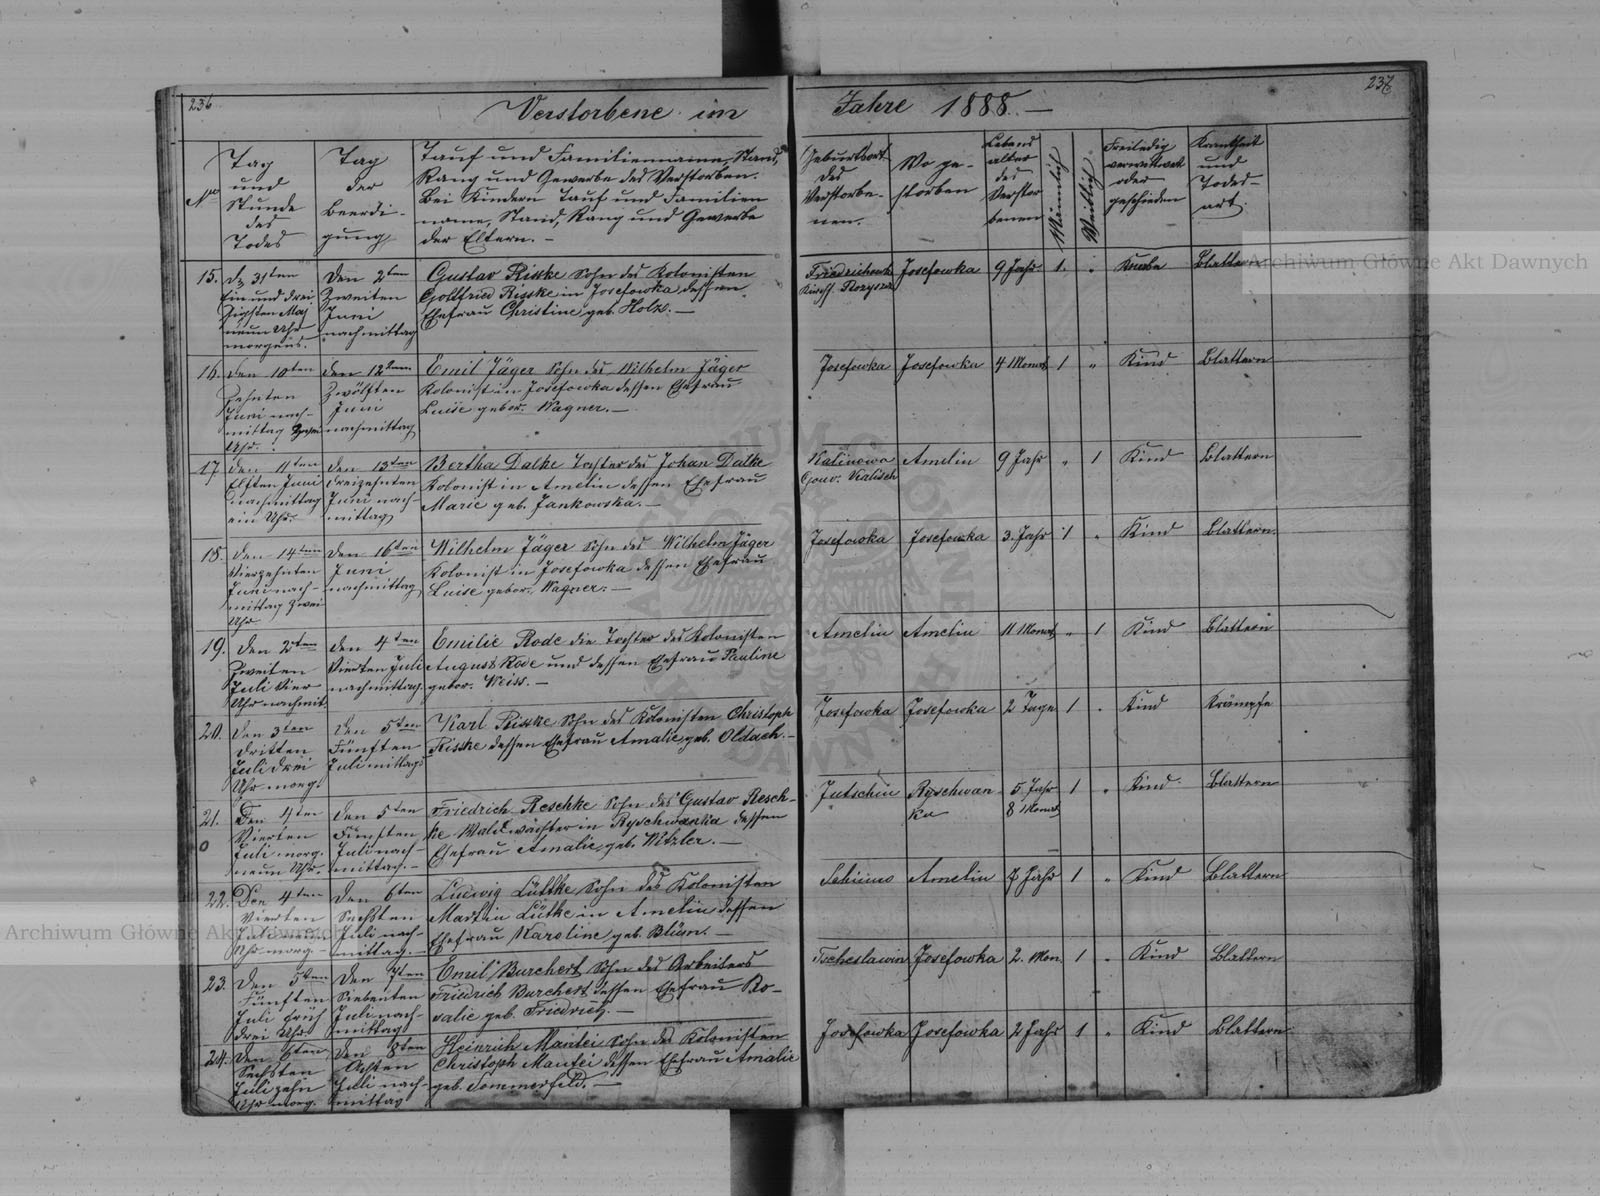 236
237
Verstorbene im Jahre 1888. —
No
Tag
und
Stunde
des
Todes
Tag
der
Beerdi-
gung
Tauf und Familienname, Stand,
Rang und Gewerbe des Verstorben.
Bei Kindern Tauf und Familien
name, Stand, Rang und Gewerbe
der Eltern. —
Geburtsort
des
Verstorbe-
nen.
Wo ge-
storben
Lebens
alter
des
Verstor
benen
Männlich
Weiblich
Freiledig
verwittwet
oder
geschieden
Krankheit
und
Todes-
art.
15.
31ten
Ein und drei
zigsten Maj
neun Uhr
morgens.
Den 2ten
Zweiten
Juni
nachmittag
Gustav Risske Sohn des Kolonisten
Gottfried Risske in Josefowka dessen
Ehefrau Christine geb. Holz. —
Josefowka
9 Jahr
1.
"
Knabe
Blattern
16.
den 10ten
Zehnten
Juni nach-
mittag
Uhr.
den 12ten
Zwölften
Juni
nachmittag
Emil Jäger Sohn des Wilhelm Jäger
Kolonist in Josefowka dessen Ehefrau
Luise gebor. Wagner. —
Josefowka
Josefowka
4 Monat
1
"
Kind
Blattern
17
den 11ten
Elften Juni
nachmittag
ein Uhr.
den 13ten
dreizehnten
Juni nach-
mittag
Bertha Dalke Tochter des Johan Dalke
Kolonist in Amelin dessen Ehefrau
Marie geb. Jankowska. —
Kalinowa
Gouv. Kalisch
Amelin
9 Jahr
"
1
Kind
Blattern
18.
den 14ten
Vierzehnten
Juni nach-
mittag zwei
Uhr
den 16ten
Juni
nachmittag
Wilhelm Jäger Sohn des Wilhelm Jäger
Kolonist in Josefowka dessen Ehefrau
Luise gebor. Wagner. —
Josefowka
Josefowka
3. Jahr
1
"
Kind
Blattern.
19.
den 2ten
Zweiten
Juli vier
Uhr nachmit.
den 4ten
Vierten Juli
nachmittag.
Emilie Rode die Tochter des Kolonisten
August Rode und dessen Ehefrau Pauline
gebor. Weiss. —
Amelin
Amelin
11 Monat
"
1
Kind
Blattern
20.
den 3ten
dritten
Juli drei
Uhr morg.
den 5ten
Fünften
Juli mittags
Karl Risske Sohn des Kolonisten Christoph
Risske dessen Ehefrau Amalie geb. Oldach. —
Josefowka
Josefowka
2 Tage
1
"
Kind
Krämpfe
21.
Den 4ten
Vierten
Juli morg.
neun Uhr.
den 5ten
Fünften
Juli nach-
mittag. —
Friedrich Reschke Sohn des Gustav Resch-
ke Waldwächter in Ryschwanka dessen
Ehefrau Amalie geb. Witzler. —
Jutschin
Ryschwan-
ka
5. Jahr
8 Monat
1
"
Kind
Blattern
22.
Den 4ten
Vierten
Juli
Uhr morg. —
den 6ten
Sechsten
Juli nach-
mittag. —
Ludwig Lüttke Sohn des Kolonisten
Martin Lütke in Amelin dessen
Ehefrau Karoline geb. Blüm. —
Amelin
7 Jahr
1
"
Kind
Blattern
23.
Den 5ten
Fünften
Juli früh
drei Uhr
Den 7ten
Siebenten
Juli nach-
mittag
Emil Burchert Sohn des Arbeiters
Friedrich Burchert dessen Ehefrau Ro-
salie geb. Friedrich. —
Tucheslawin
Josefowka
2. Mon.
1
"
Kind
Blattern
24.
Den 6ten
Sechsten
Juli zehn
Uhr morg.
Den 8ten
Achten
Juli nach-
mittag
Heinrich Mantei Sohn des Kolonisten
Christoph Mantei dessen Ehefrau Amalie
geb. Sommerfeld. —
Josefowka
Josefowka
2 Jahr
1
"
Kind
Blattern
Archiwum Główne Akt Dawnych
Archiwum Główne Akt Dawnych